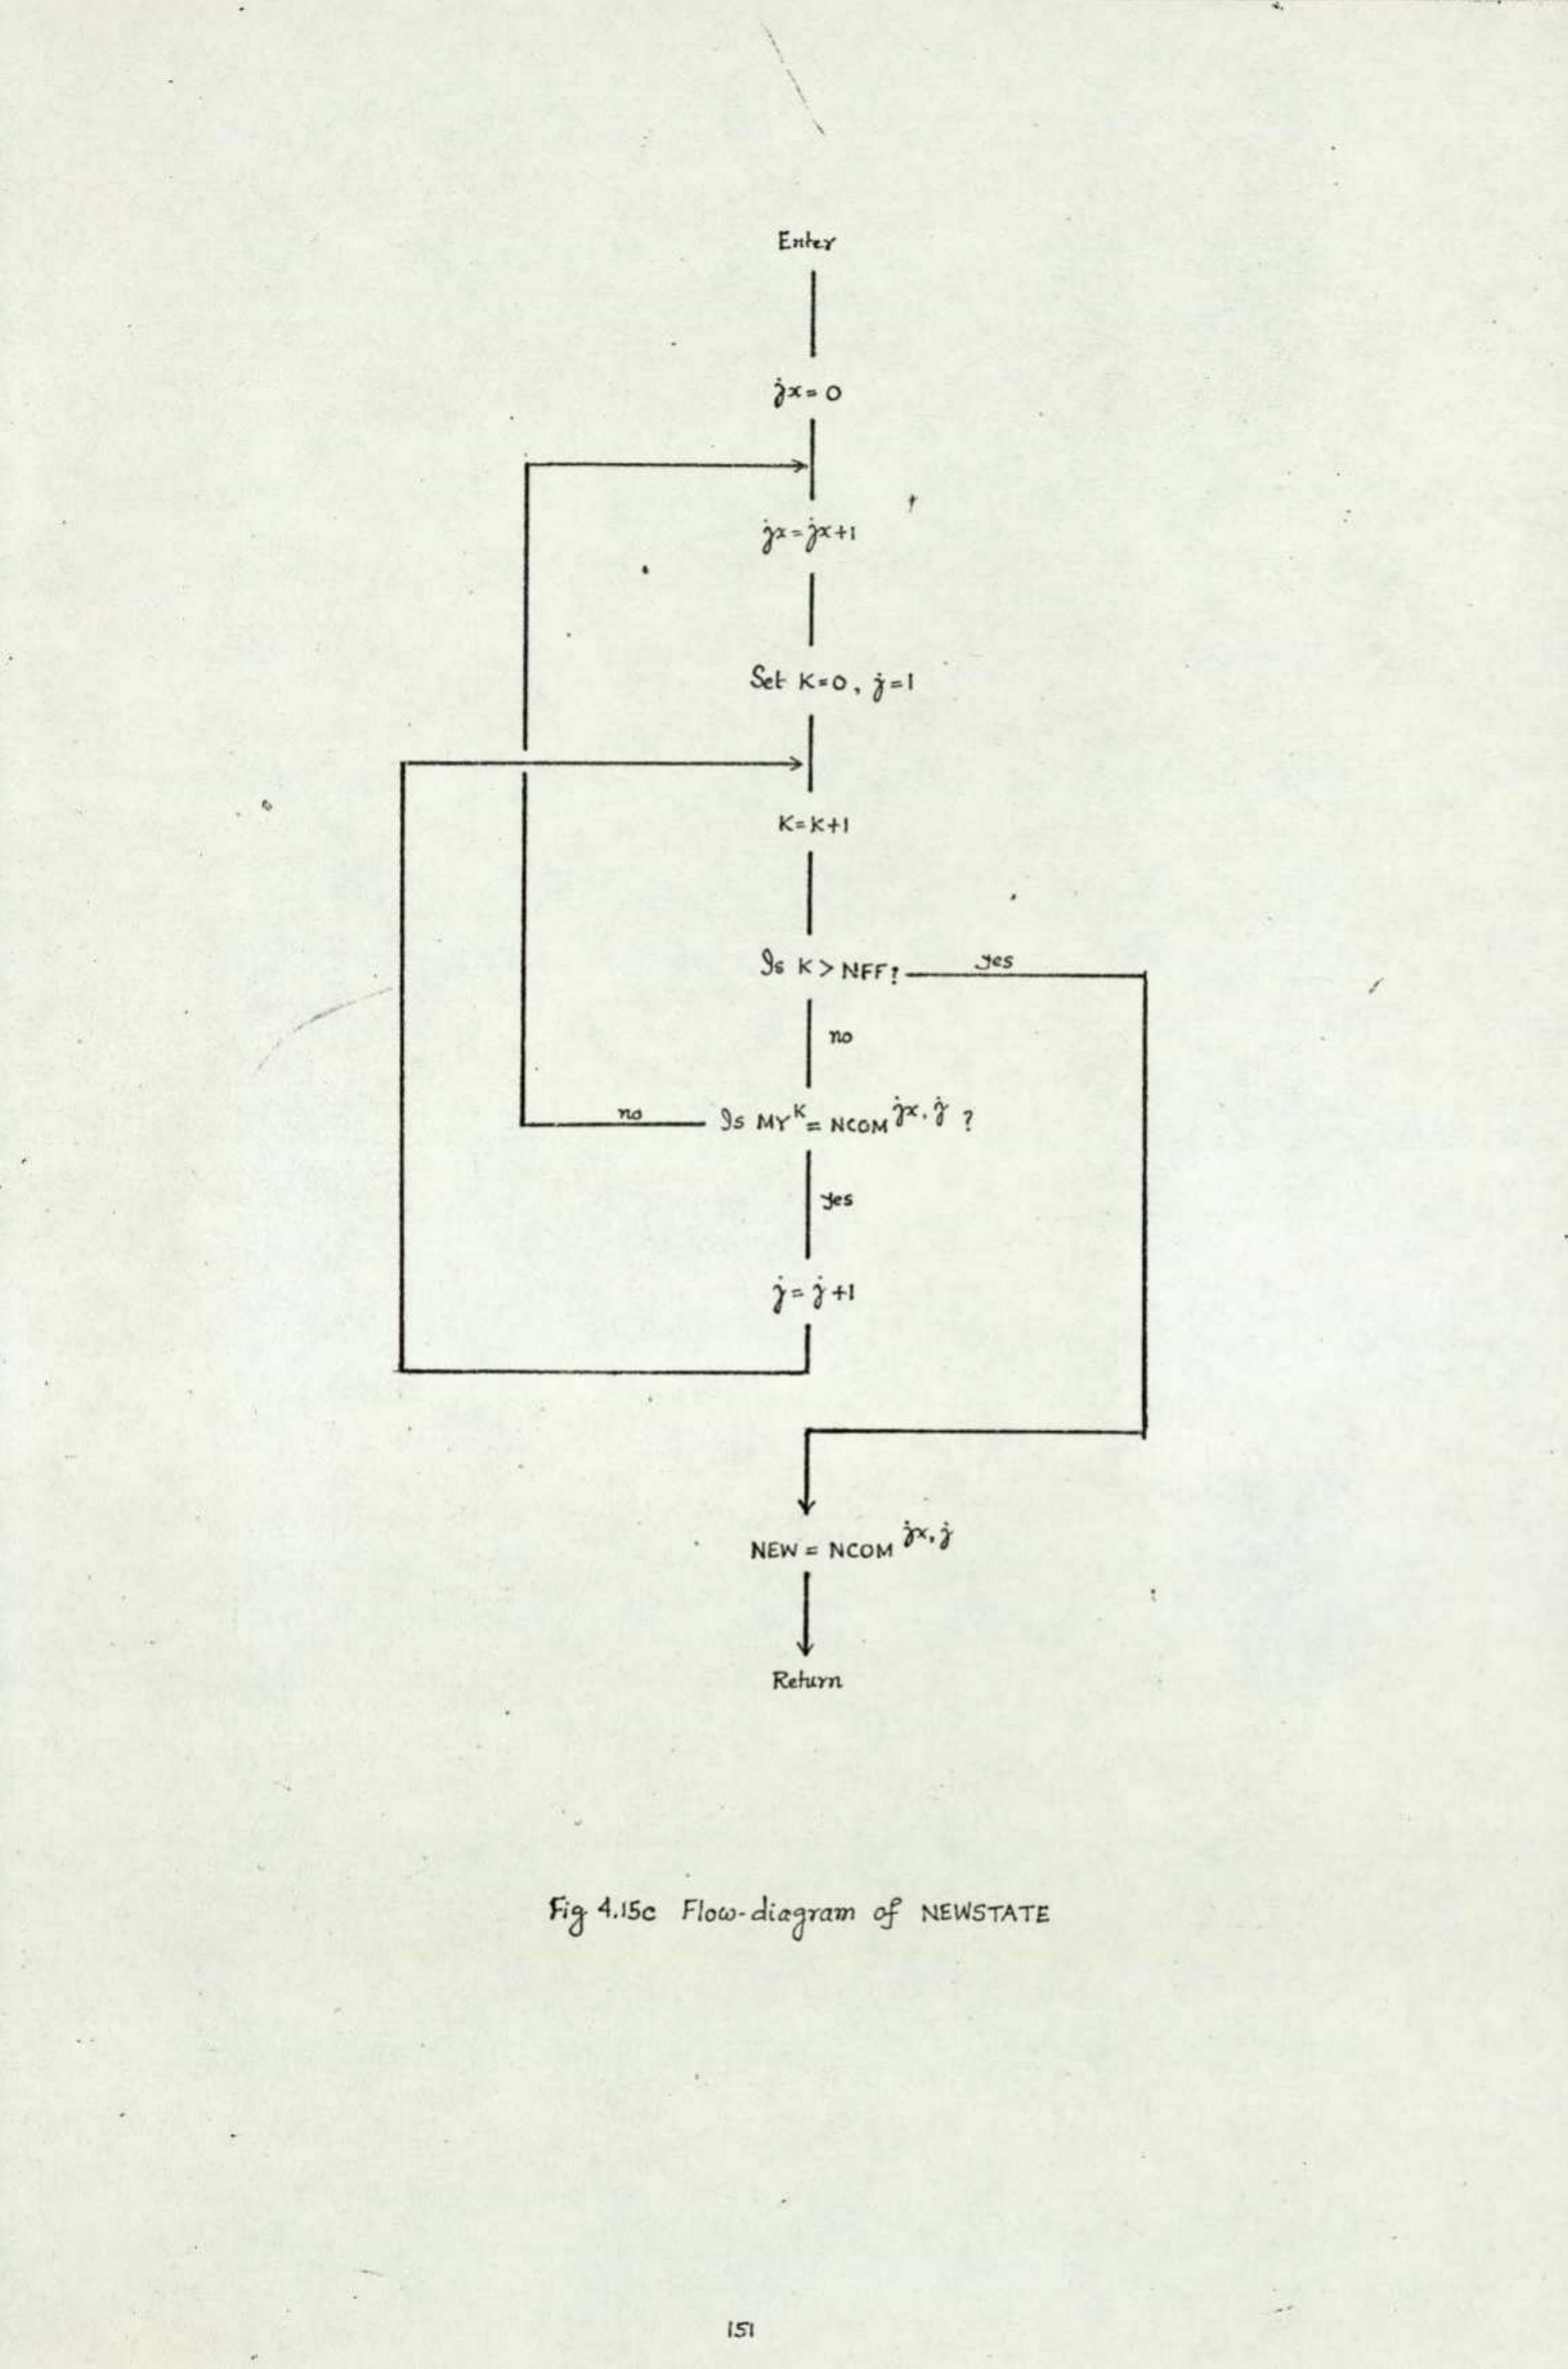 Enter
jx=0
jx=jx+1
Set K=0, j=1
K=K+1
Is K > NFF? yes
no
no Is MY^K = NCOM^jx,j ?
yes
j=j+1
NEW = NCOM^jx,j
Return
Fig 4.15c Flow-diagram of NEWSTATE
151